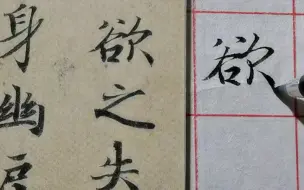 欲之失
身幽戻
欲